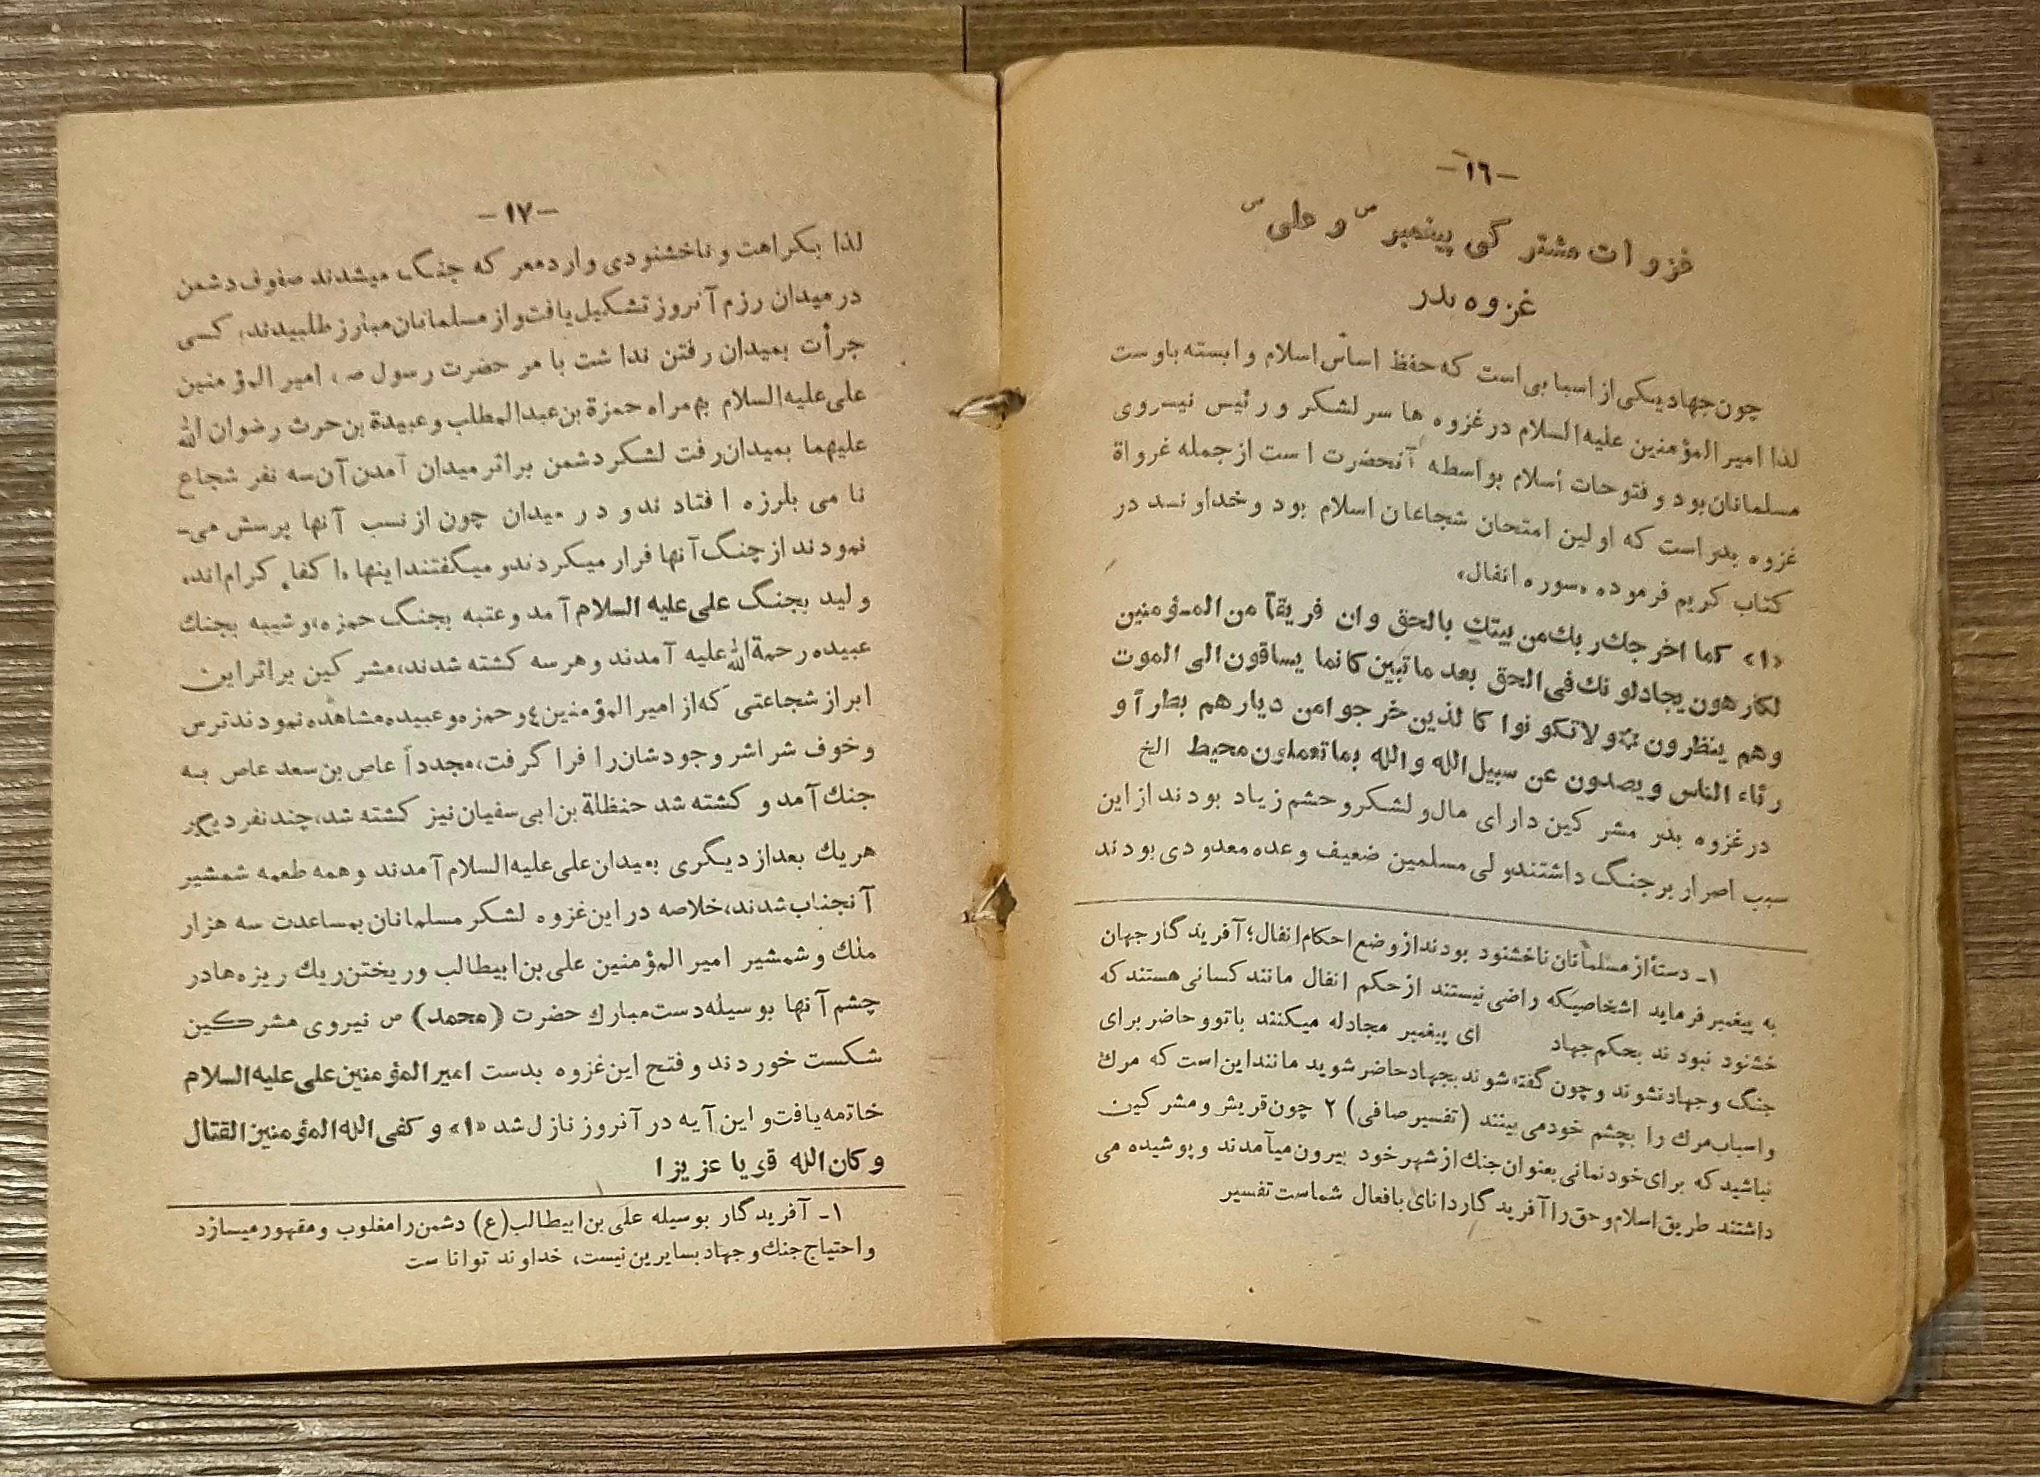 -۱٦-
غزوات مشتركی پیغمبر ص و علی ص
غزوه بدر
چون جهاد یکی از اسبابی است که حفظ اساس اسلام وابسته باوست
لذا امیرالمؤمنین علیه السلام در غزوه ها سر لشکر و رئیس نیروی
مسلمانان بود و فتوحات اسلام بواسطه آنحضرت است از جمله غزواة
غزوه بدر است که اولین امتحان شجاعان اسلام بود و خداوند در
کتاب کریم فرموده «سوره انفال»
«۱» کما اخرجك ربك من بیتك بالحق وان فریقاً من المؤمنین
لکارهون یجادلونك فی الحق بعد ما تبین کانما یساقون الی الموت
وهم ینظرون ولاتکونوا کالذین خرجوا من دیارهم بطراً و
رئاء الناس ویصدون عن سبیل الله والله بما تعملون محیط الخ
در غزوه بدر مشرکین دارای مال و لشکر و حشم زیاد بودند از این
سبب اصرار بر جنگ داشتند ولی مسلمین ضعیف و عده معدودی بودند
۱ـ دستهٔ از مسلمانان ناخشنود بودند از وضع احکام انفال؛ آفریدگار جهان
به پیغمبر فرماید اشخاصیکه راضی نیستند از حکم انفال مانند کسانی هستند که
خشنود نبودند بحکم جهاد ای پیغمبر مجادله میکنند باتو و حاضر برای
جنگ و جهاد نشوند و چون گفته شوند بجهاد حاضر شوید مانند این است که مرك
و اسباب مرك را بچشم خود می بینند (تفسیر صافی) ۲ چون قریش و مشرکین
نباشید که برای خودنمائی بعنوان جنك از شهر خود بیرون میآمدند و پوشیده می
داشتند طریق اسلام و حق را آفریدگار دانای بافعال شماست تفسیر
-۱۷-
لذا بکراهت و ناخشنودی وارد معرکه جنگ میشدند صفوف دشمن
در میدان رزم آنروز تشکیل یافت و از مسلمانان مبارز طلبیدند، کسی
جرأت بمیدان رفتن نداشت بامر حضرت رسول ص، امیرالمؤمنین
علی علیه السلام بهمراه حمزة بن عبدالمطلب و عبیدة بن حرث رضوان الله
علیهما بمیدان رفت لشکر دشمن براثر میدان آمدن آن سه نفر شجاع
نامی بلرزه افتادند و در میدان چون از نسب آنها پرسش می-
نمودند از چنگ آنها فرار میکردند و میگفتند اینها «اکفاء کرام اند»
ولید بجنگ علی علیه السلام آمد و عتبه بجنگ حمزه، و شیبه بجنك
عبیده رحمة الله علیه آمدند و هر سه کشته شدند، مشرکین براثر این
ابراز شجاعتی که از امیرالمؤمنین ع و حمزه و عبیده مشاهده نمودند ترس
و خوف شراشر وجودشان را فرا گرفت، مجدداً عاص بن سعد عاص به
جنك آمد و کشته شد حنظلة بن ابی سفیان نیز کشته شد، چند نفر دیگر
هر یك بعد از دیگری بمیدان علی علیه السلام آمدند و همه طعمه شمشیر
آنجناب شدند، خلاصه در این غزوه لشکر مسلمانان بمساعدت سه هزار
ملك و شمشیر امیرالمؤمنین علی بن ابیطالب و ریختن ریك ریزه ها در
چشم آنها بوسیله دست مبارك حضرت (محمد) ص نیروی مشرکین
شکست خوردند و فتح این غزوه بدست امیرالمؤمنین علی علیه السلام
خاتمه یافت و این آیه در آنروز نازل شد «۱» و کفی الله المؤمنین القتال
و کان الله قویا عزیزا
۱ـ آفریدگار بوسیله علی بن ابیطالب (ع) دشمن را مغلوب و مقهور میسازد
و احتیاج جنك و جهاد بسایرین نیست، خداوند توانا ست